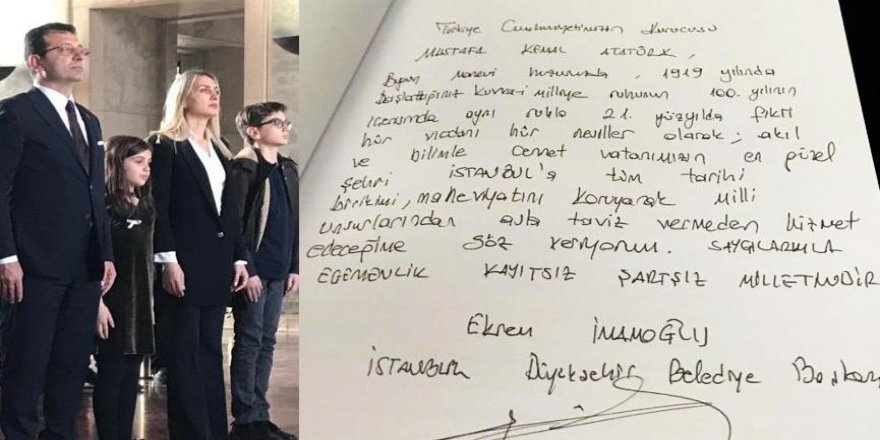 Türkiye Cumhuriyetinizin Kurucusu
MUSTAFA KEMAL ATATÜRK,
Bugün Manevi huzurunuzda, 1919 yılında
Başlattığınız Kuvvayi Milliye ruhunun 100. yılının
içerisinde aynı ruhla 21. yüzyılda fikri
hür vicdanı hür nesiller olarak; akıl
ve bilimle Cennet vatanımızın en güzel
Şehri İSTANBUL'a tüm tarihi
birikimi, maneviyatını koruyarak Milli
unsurlarından asla taviz vermeden hizmet
edeceğime söz veriyorum. SAYGILARIMLA
EGEMENLİK KAYITSIZ ŞARTSIZ MİLLETİNDİR
Ekrem İMAMOĞLU
İSTANBUL Büyükşehir Belediye Başkanı